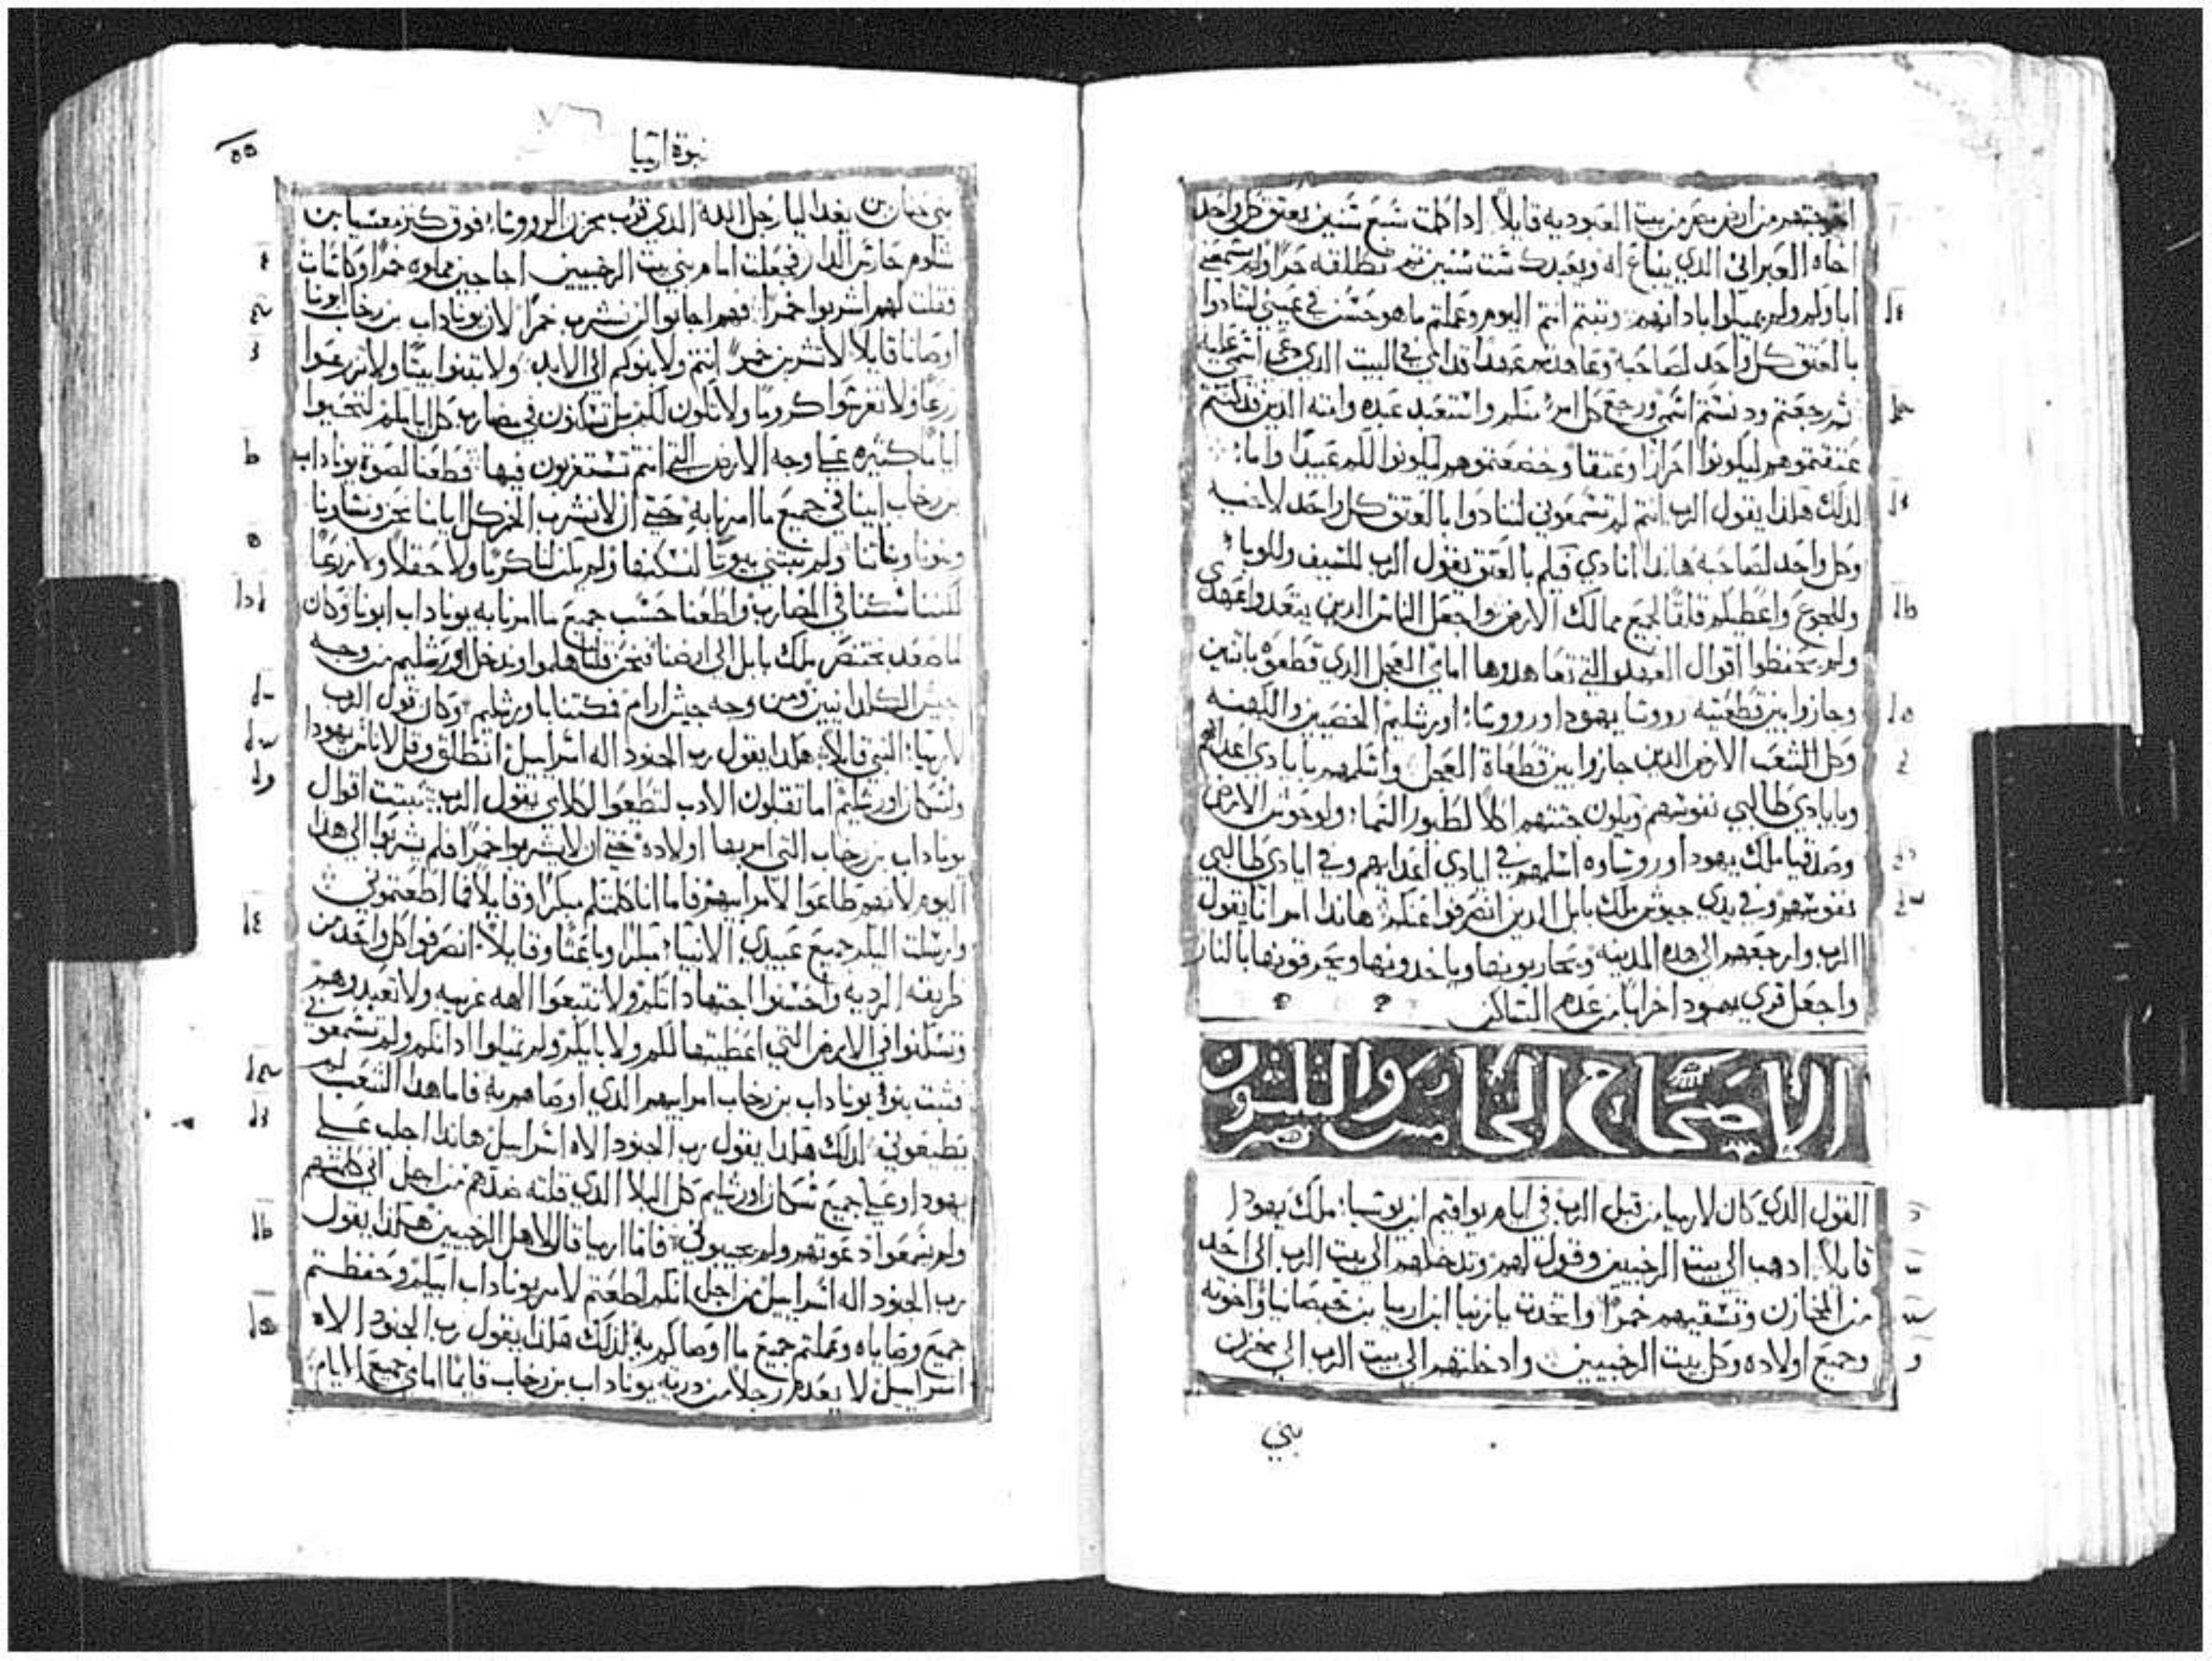 اخرجتهم من ارض مصر من بيت العبوديه قايلاً اذا كملت سبع سنين يعتق كل واحد
اخاه العبراني الذي يباع له ويعبدك ست سنين ثم تطلقه حرًا ولم يسمعني
اباوكم ولم يميلوا باداانهم وتبتم انتم اليوم وعملتم ما هو حسن في عيني لتنادوا
بالعتق كل واحد لصاحبه وعاهدتم عهدًا قدامي في البيت الذي دعي اسمي عليه
ثم رجعتم ودنستم اسمي ورجع كل امرء منكم واستعبد عبده وامته الذين قد كنتم
عتقتموهم ليكونوا احرارًا وعتقا وخضعتموهم ليكونوا لكم عبيدًا واما
لذلك هكذا يقول الرب انتم لم تسمعوني لتنادوا بالعتق كل واحد لاخيه
وكل واحد لصاحبه هانذا انادي فيكم بالعتق يقول الرب للسيف وللوباء
وللجوع واعطيكم قلقًا لجميع ممالك الارض واجعل الناس الدين يتعدوا عهدي
ولم يحفظوا اقوال العهد التي تعاهدوها امامي العجل الدي قطعوه باتنين
وجازوا بين قطعتيه رووسا يهودا ورووسا اورشليم الخصيين والكهنه
وكل الشعب الارض الدين جازوا بين قطعاة العجل واسلمهم بايادي اعدايهم
وبايادي طالبي نفوسهم وتكون جثتهم اكلاً لطيور السما ولوحوش الارض
وصدقيا ملك يهودا ورووساوه اسلمهم في ايادي اعدايهم وفي ايادي طالبي
نفوسهم وفي يدي جيوش ملك بابل الدين انصرفوا عنكم هاندا امر انا يقول
الرب وارجعهم الى هذه المدينه ويحاربونها وياخدونها ويحرقونها بالنار
واجعل قري يهودا خرابًا من عدم الساكن
الاصحاح الخامس والثلثون
القول الدي كان لارميا من قبل الرب في ايام يواقيم ابن يوسيا ملك يهودا
قايلاً ادهب الى بيت الرخبيين وقول لهم وتدخلهم الى بيت الرب الى احد
من المخازن وتسقيهم خمرًا واتخدت يازنيا ابن ارميا بن خبصانيا واخوته
وجميع اولاده وكل بيت الرخبيين وادخلتهم الى بيت الرب الى مخزن
بني
نبوة ارميا
٥٥
بني حنان بن يغداليا رجل الله الدي قرب مخزن الرووسا فوق كنز معسيا بن
شلوم حارس الدار فجعلت امام بني بيت الرخبيين اجاجين مملوه خمرًا وكاسات
فقلت لهم اشربوا خمرًا فهم اجابوا لن نشرب خمرًا لان يوناداب بن رخاب ابونا
اوصانا قايلاً لا تشربن خمرًا انتم ولا بنوكم الى الابد ولا تبنوا بيتًا ولا تزرعوا
زرعًا ولا تغرسوا كرومًا ولا تكون لكم بل تسكنون في مضارب كل ايامكم لتحيوا
ايامًا كتيره على وجه الارض التي انتم تستغربون فيها فطعنا لصوة يوناداب
بن رخاب ابينا في جميع ما امرنا به حتى ان لا نشرب الخمر كل ايامنا نحن ونساونا
وبنونا وبناتنا ولم نبتني بيوتًا لنسكنها ولم يكن لنا كرمًا ولا حقلاً ولا زرعًا
لكننا سكنا في المضارب واطعنا حسب جميع ما امرنا به يوناداب ابونا وكان
لما صعد بختنصر ملك بابل الى ارضنا فنحن قلنا هلموا وندخل اورشليم من وجه
جيش الكلدانيين ومن وجه جيش ارام فمكتنا باورشليم وكان قول الرب
لارميا النبي قايلاً هكدا يقول رب الجنود اله اسراييل انطلق وقل لاناس يهودا
ولسكان اورشليم اما تقبلون الادب لتطيعوا لكلامي يقول الرب ثبتت اقوال
يوناداب بن رخاب التي امر بها اولاده حتى ان لا يشربوا خمرًا فلم يشربوا الى هدا
اليوم لانهم طاعوا لامر ابيهم فاما انا كلمتكم مبكرًا وقايلاً فما اطعتموني
وارسلت اليكم جميع عبيدي الانبيا مبكرًا وباعثًا وقايلاً انصرفوا كل واحد من
طريقه الرديه واحسنوا اجتهاداتكم ولا تتبعوا الهه غريبه ولا تعبدوهم
وتسكنوا في الارض التي اعطيتها لكم ولابايكم ولم تميلوا ادانكم ولم تسمعوني
فثبت بنو يوناداب بن رخاب امر ابيهم الدي اوصاهم به فاما هدا الشعب لم
تطيعوني لدلك هكدا يقول رب الجنود الاه اسراييل هاندا اجلب على
يهودا وعلى جميع سكان اورشليم كل البلا الدي قلته ضدهم من اجل اني كلمتهم
ولم يسمعوا دعوتهم ولم يجيبوني فاما ارميا قال لاهل الرخبيين هكدا يقول
رب الجنود اله اسراييل من اجل انكم اطعتم لامر يوناداب ابيكم وحفظتم
جميع وصاياه وعملتم جميع ما اوصاكم به لدلك هكدا يقول رب الجنود الاه
اسراييل لا يعدم رجلاً من درية يوناداب بن رخاب قايمًا امامي جميع الايام